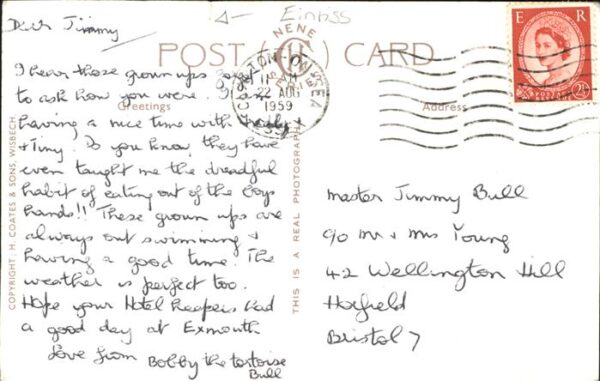 Dear Jimmy
Einriss
POST CARD
NENE
E R
I hear those grown ups forgot
to ask how you were. I am
having a nice time with
+ Timy. Do you know, they have
even taught me the dreadful
habit of eating out of the boys
hands!! These grown ups are
always out swimming +
having a good time. The
weather is perfect too.
Hope your Hotel Keepers had
a good day at Exmouth
Love from Bobby the tortoise
Bull
Greetings
Address
CLACTON-ON-SEA
22 AUG
1959
2½
Master Jimmy Bull
c/o Mr + Mrs Young
42 Wellington Hill
Horfield
Bristol 7
COPYRIGHT H. COATES & SONS, WISBECH
THIS IS A REAL PHOTOGRAPH